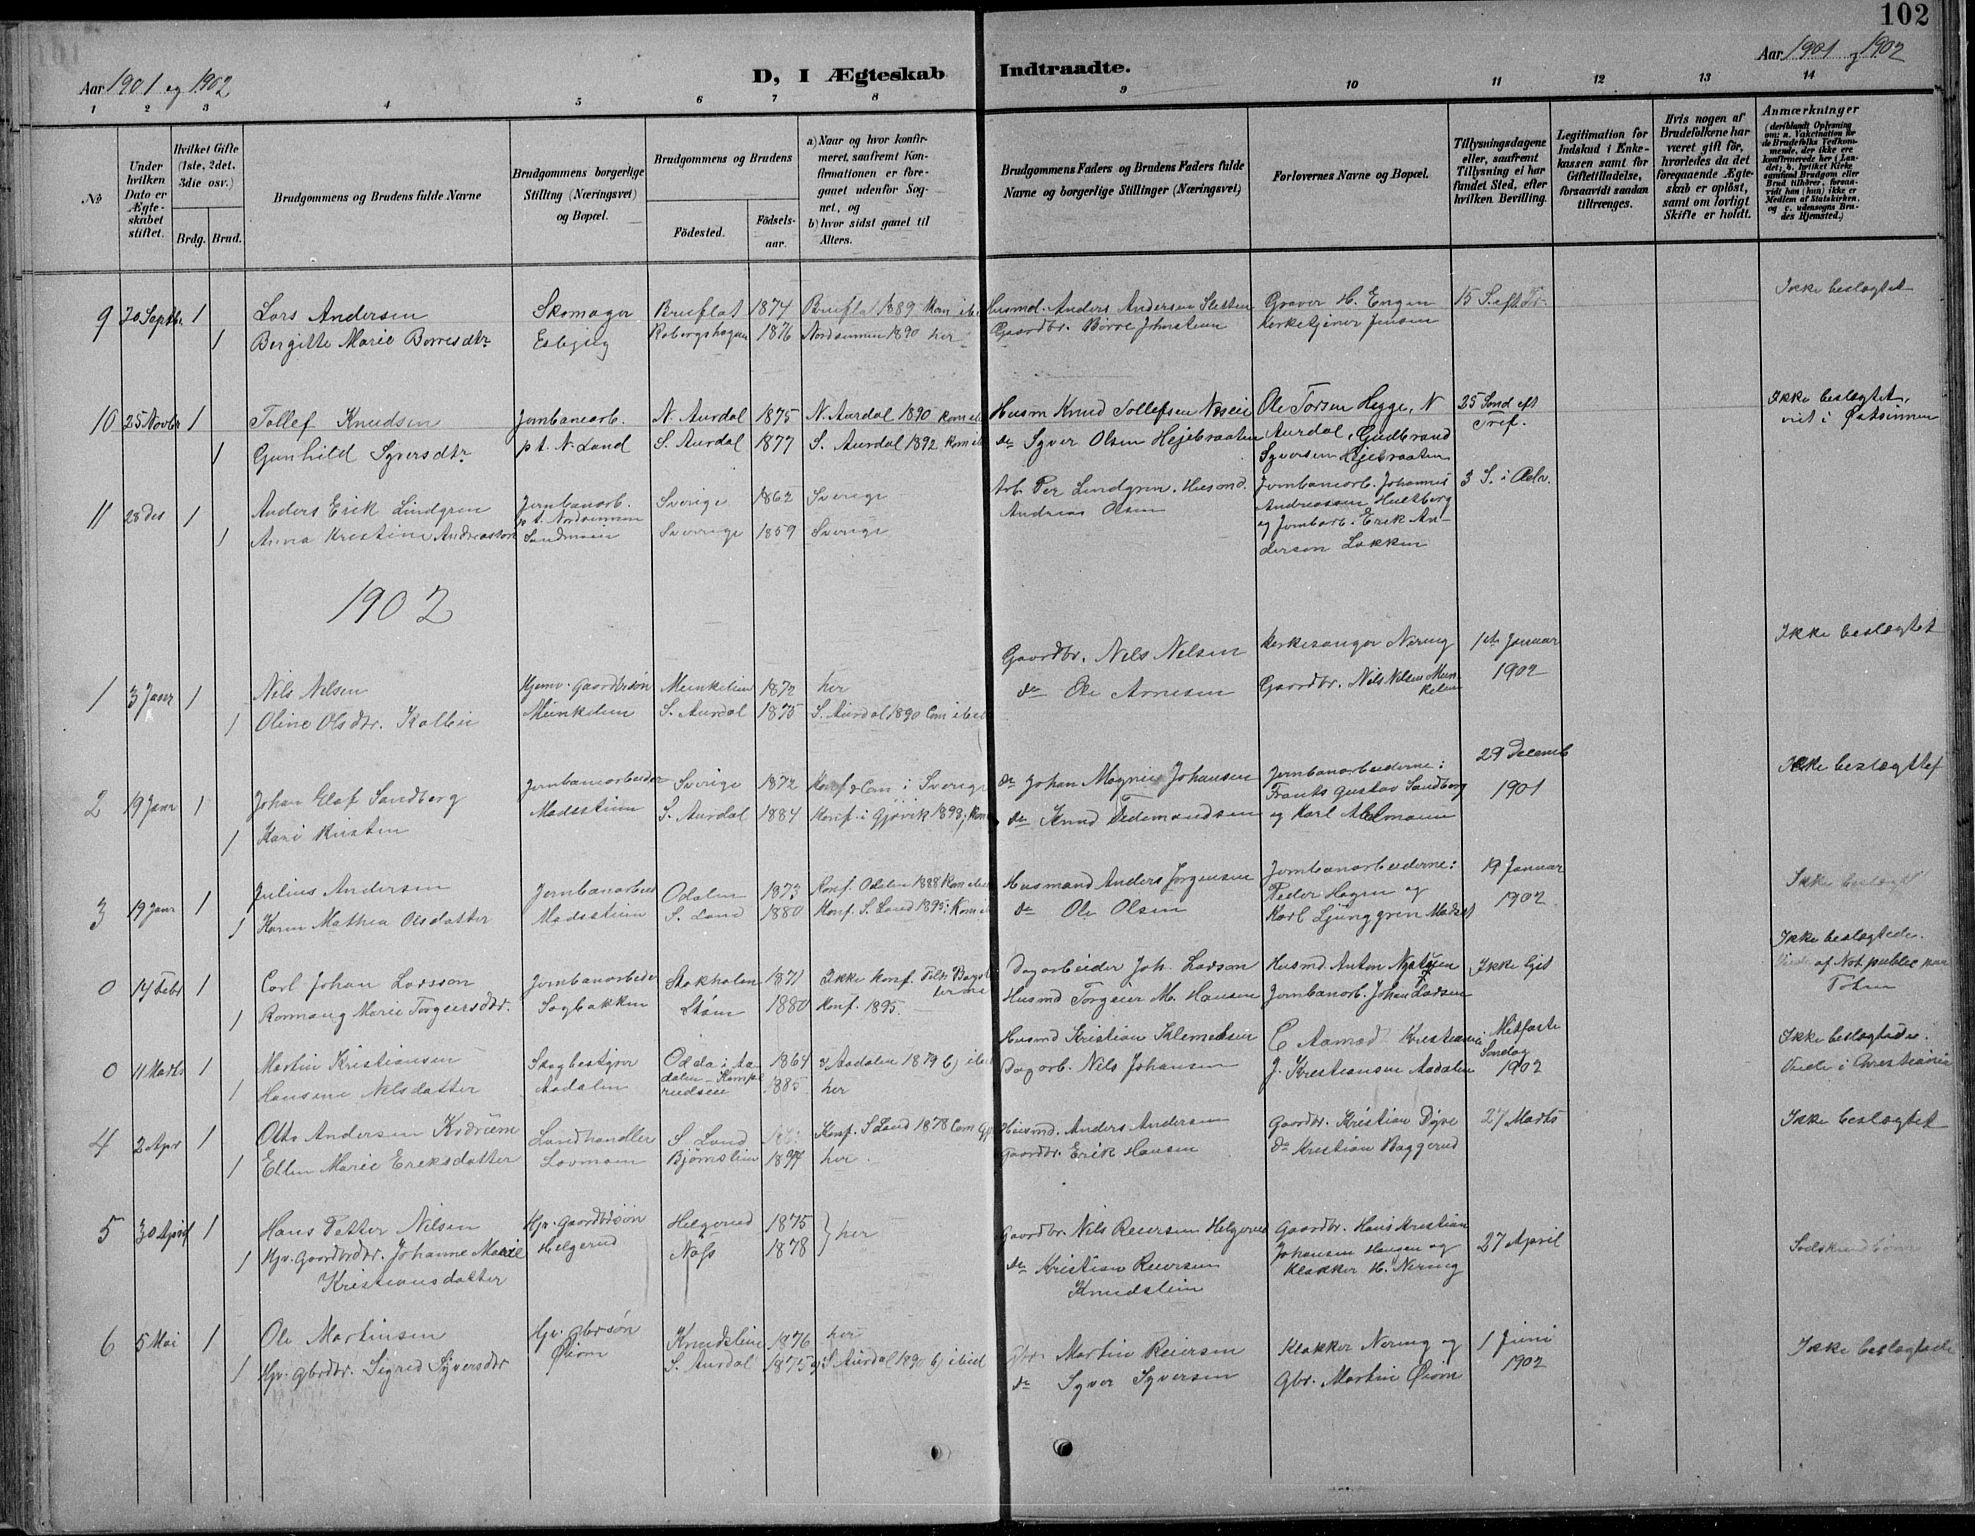 102
Aar 1901 og 1902
D, I Ægteskab Indtraadte.
Aar 1901 og 1902
1 2 3 4 5 6 7 8 9 10 11 12 13 14
No
Under hvilken Dato er Ægteskabet stiftet.
Hvilket Gifte (1ste, 2det. 3die osv.)
Brdg. Brud.
Brudgommens og Brudens fulde Navne
Brudgommens borgerlige Stilling (Næringsvei) og Bopæl.
Brudgommens og Brudens
Födested. Födselsaar.
a) Naar og hvor konfirmeret, saafremt Konfirmationen er foregaaet udenfor Sognet, og
b) hvor sidst gaaet til Alters.
Brudgommens Faders og Brudens Faders fulde Navne og borgerlige Stillinger (Næringsvei)
Forlovernes Navne og Bopæl.
Tillysningsdagene eller, saafremt Tillysning ei har fundet Sted, efter hvilken Bevilling.
Legitimation for Indskud i Enkekassen samt for Giftetilladelse, forsaavidt saadan tiltrænges.
Hvis nogen af Brudefolkene har været gift för, hvorledes da det foregaaende Ægteskab er oplöst, samt om lovligt Skifte er holdt.
Anmærkninger (deriblandt Oplysning om: a. Vakcination for de Brudefolks Vedkommende, der ikke ere konfirmerede her i Landet; b. hvilket Kirkesamfund Brudgom eller Brud tilhörer, forsaavidt han (hun) ikke er Medlem af Statskirken, og c. udensogns Brudes Hjemsted.)
9 20 Septbr. 1 Lars Andersen Skomager Bruflat 1874 Bruflat 1889 Kom ibid Husmd. Anders Andersen Sletten Graver H. Engen 15 S. eft Tr. Ikke beslægtet
1 Bergitte Marie Borresdtr Esbjerg 1876 Nordsinnen 1890 her Gaardbr. Börre Johnsteien Kirketjener Jensen
10 25 Novbr 1 Tollef Knudsen Jernbanearb. N. Aurdal 1875 N. Aurdal 1890 Kom ibid Husm Knud Tollefsen Ole Torsen Hegge, N 25 Sönd eft Tref. Ikke beslægtet, viet i Østsinnen
1 Gunhild Syversdtr pt. N. Land S. Aurdal 1877 S. Aurdal 1892 Kom ibid do Syver Olsen Hejebraaten Aurdal, Gudbrand
Syversen Hejebraaten
11 28 Des 1 Anders Erik Lindgren Jernbanarb. Sverige 1862 Sverige Arb. Per Lindgren. Husmd. Jernbanearb. Johannes 3 S. i Adv.
pt. Nordsinnen
1 Anna Kristine Andreasson Landmoen Sverrige 1859 Sverige Andreas Olsen Andreassen Hultberg
og Jernbarb. Erik Andersen Løkken
1902
1 3 Janr 1 Nils Nilsen Hjemv. Gaardbrsøn Munkelien 1872 her Gaardbr. Nils Nilsen Kirkesanger Nering 1ste Januar 1902 Ikke beslægtet
1 Oline Olsdtr. Kolbu Munkelien S. Aurdal 1875 S. Aurdal 1890 Com ibid do Ole Arnesen Gaardbr. Nils Nilsen Munkelien
2 19 Janr 1 Johan Olof Sandberg Jernbanearbeider Sverige 1872 Konf & Com i Sverige do Johan Magnus Johansen Jernbanarbeiderne: 29 Decemb 1901 Ikke beslægtet
1 Kari Kristine Madsstuen S. Aurdal 1884 Konf. i Gjövik 1898; Kom do Knud Tidemandsen Frants Gustav Sandberg
og Karl Ahlmann
3 19 Janr 1 Julius Andersen Jernbanarbeid Odalen 1873 Konf. Odalen 1888 Kom ibid Husmand Anders Jørgensen Jernbanarbeiderne: 19 Januar 1902. Ikke beslægt
1 Karen Mathea Olsdatter Madsstuen S. Land 1880 Konf. S. Land 1895; Kom ib do Ole Olsen Peder Hagen og
Karl Ljunggren Madsst
0 14 Febr 1 Carl Johan Larsson Jernbanarbeider Stokholm 1871 Ikke Konf. Dagarbeider Joh. Larson Husmd. Anton Nystuen Ikke lyst Ikke beslægtede.
1 Romaug Marie Torgersdtr. Sagbakken 1880 Konf. 1895. Husmd Torgeir M. Hansen Jernbanarb. Johan Larsen Viede af Not. publec paa Toten
0 11 Marts 1 Martin Kristiansen Skogbestyrer Odda i Aadalen 1864 a) Aadalen 1879 b) ibid Husmd Kristian Klemetsen C Aamod Kristiania Mitfaste Söndag 1902 Ikke beslægtede.
1 Hansine Nilsdatter Aadalen 1885 her Dagarb. Nils Johansen J. Kristiansen Aadalen Viede i Christiania
4 2 Apr 1 Otto Andersen Landhandler S. Land Konf. S Land 1878 Com Husmd. Anders Andersen Gaardbr. Kristian Dyve 27 Marts Ikke beslægtet
1 Ellen Marie Eriksdatter Lovmoen Bjørnstuen 1877 her. Gaardbr. Erik Hansen do Kristian Baggerud
5 30 April 1 Hans Petter Nilsen Hjv. Gaardbrsøn Helgerud 1875 } her Gaardbr. Nils Reiersen Helgerud Gaardbr. Hans Kristian 27 April Södskendbørn
1 Hjv. Gaardbrdtr. Johanne Marie Helgerud Nøss 1878 do Kristian Reiersen Johansen Haugen og
Kristiansdatter Knudslien Klokker H. Nering
6 5 Mai 1 Ole Martinsen Hjv. gbrsøn Knudslien 1876 her Gbr. Martin Reiersen Klokker Nering og 1 Juni 1902 Ikke beslægtede
1 Hjv. gbrdtr. Sigrid Syversdtr Øiom S. Aurdal 1875 a) S Aurdal 1890 b) ibid do Syver Syversen Gbr. Martin Øiom